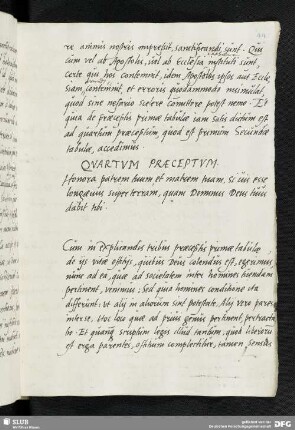 re animis nostris impressit, sanctificandi sunt. Qui
cum vel ab Apostolis, vel ab Ecclesia instituti sunt,
certe qui hos contemnit, idem Apostolos ipsos aut Eccle
siam contemnit, et erroris quodammodo insimulat,
quod sine nefario scelere committere potest nemo. Et
quia de præceptis primæ tabulæ iam satis dictum est
ad quartum præceptum quod est primum Secundæ
tabulæ, accedimus.
QVARTVM PRÆCEPTVM
Honora patrem tuum et matrem tuam, si vis esse
longævus super terram, quam Dominus Deus tuus
dabit tibi.
Cum in explicandis tribus præceptis primæ tabulæ
de ijs vitæ officijs, quibus Deus colendus est, egerimus
nunc ad ea, quæ ad societatem inter homines tuendam
pertinent, venimus. Sed quia hominum conditione ita
differunt: ut alij in aliorum sint potestate, Alij vero pares
inter se, hoc loco quæ ad prius genus pertinent, pertracta
bo. Et quanquam scriptum legis illud tantum, quod liberorum
est erga parentes, officium complectitur, tamen sensus
SLUB
Wir führen Wissen.
DFG